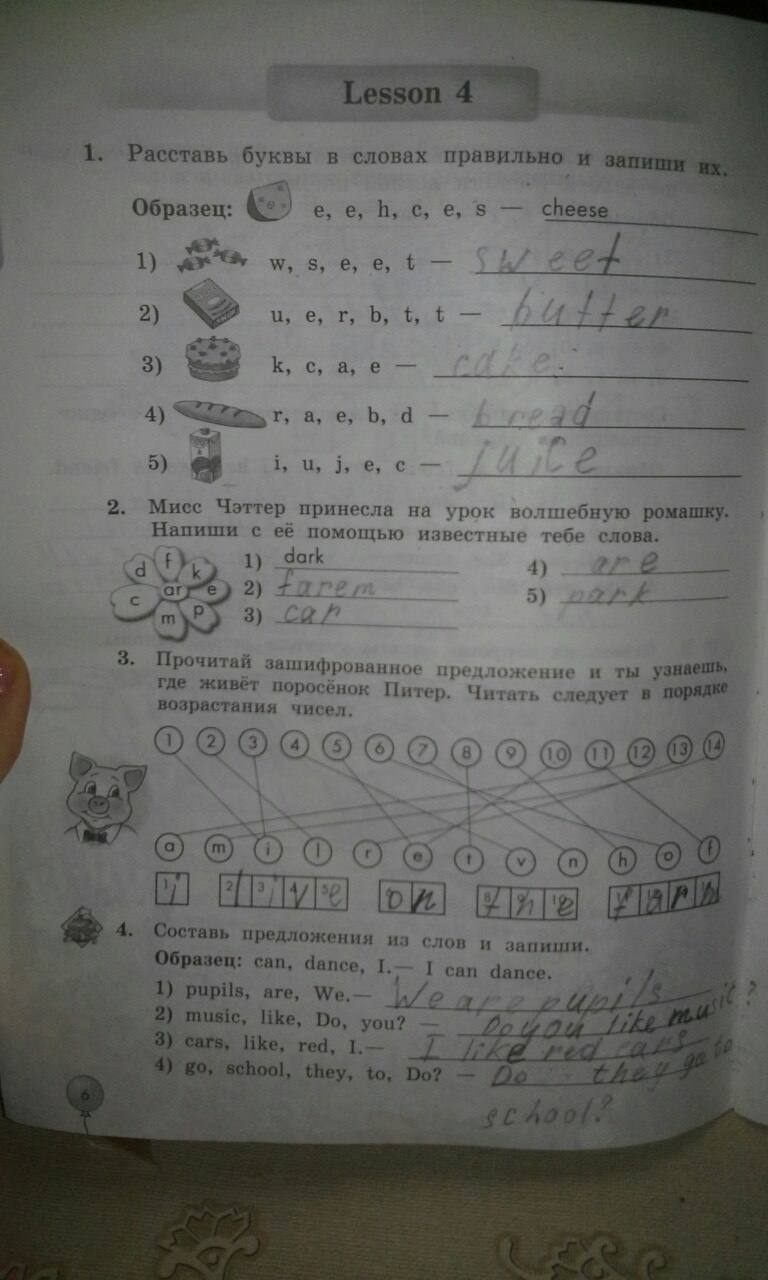 Lesson 4
1. Расставь буквы в словах правильно и запиши их.
Образец: e, e, h, c, e, s — cheese
1) w, s, e, e, t — sweet
2) u, e, r, b, t, t — butter
3) k, c, a, e — cake.
4) r, a, e, b, d — bread
5) i, u, j, e, c — juice
2. Мисс Чэттер принесла на урок волшебную ромашку.
Напиши с её помощью известные тебе слова.
d f k c ar e m p
1) dark 4) are
2) farem 5) park
3) car
3. Прочитай зашифрованное предложение и ты узнаешь,
где живёт поросёнок Питер. Читать следует в порядке
возрастания чисел.
1 2 3 4 5 6 7 8 9 10 11 12 13 14
a m i l r e t v n h o f
i live on the farm
4. Составь предложения из слов и запиши.
Образец: can, dance, I.— I can dance.
1) pupils, are, We.— We are pupils
2) music, like, Do, you? — Do you like music?
3) cars, like, red, I.— I like red cars
4) go, school, they, to, Do? — Do they go to
school?
6